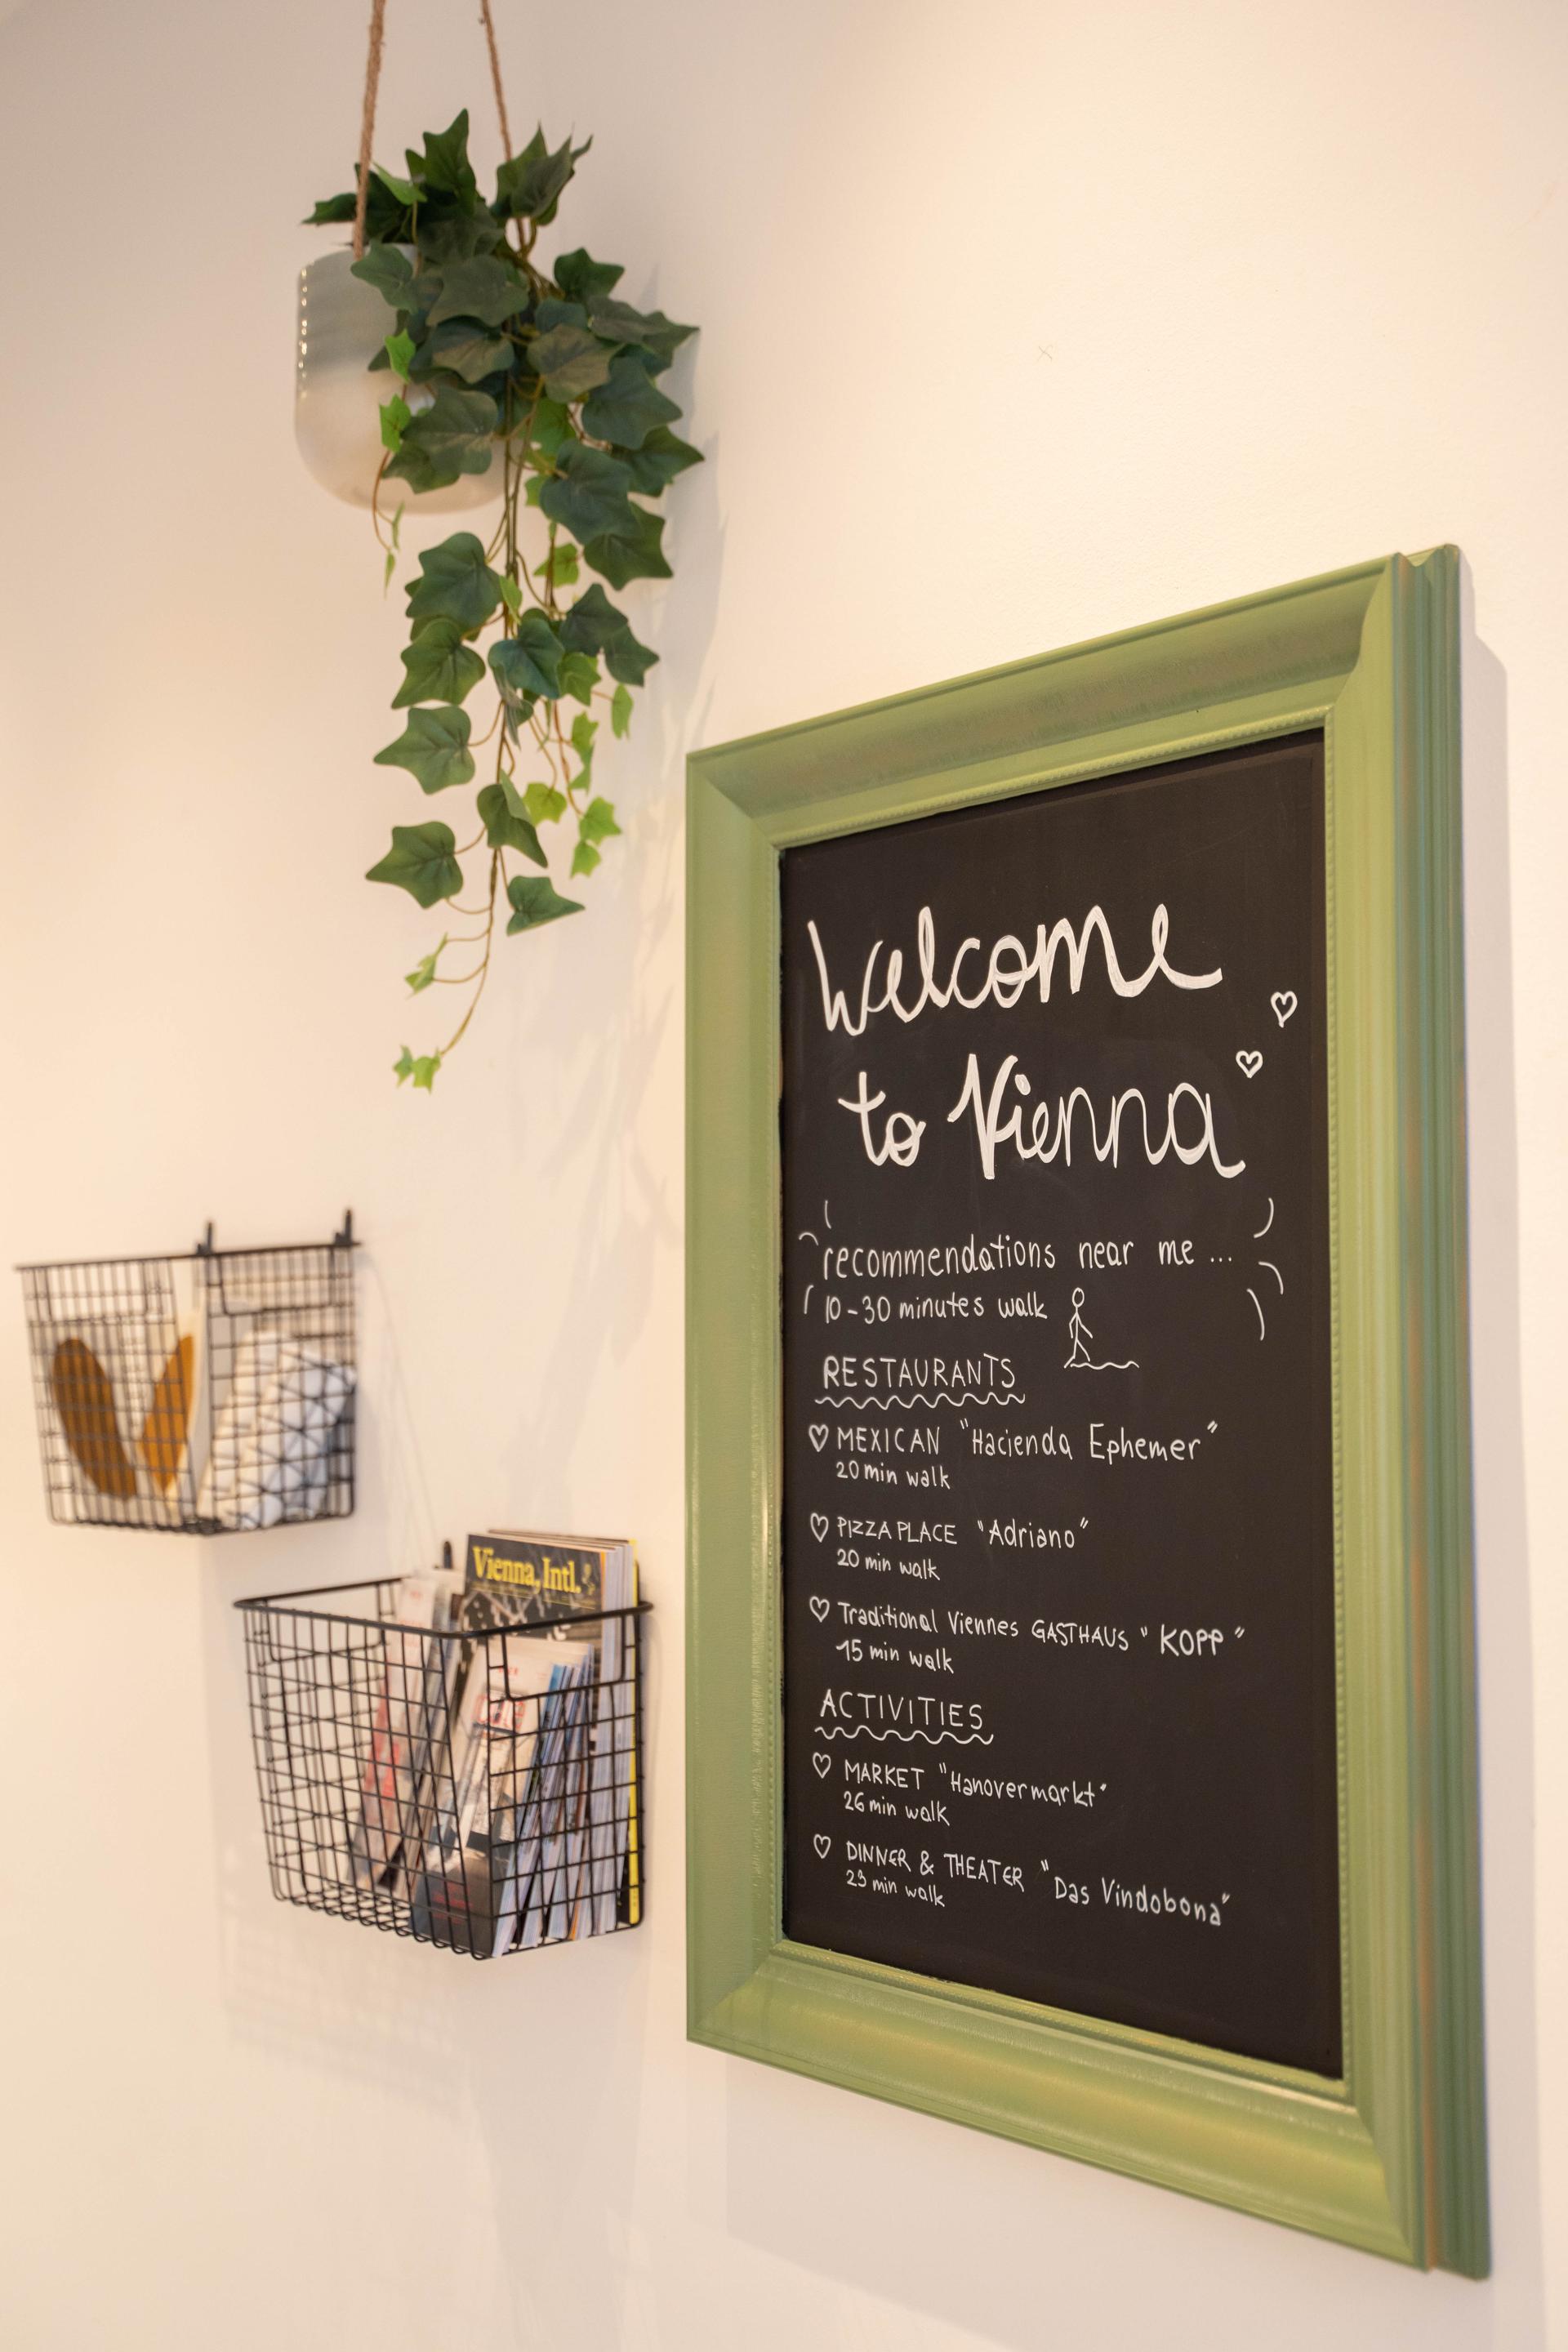 Welcome
to Vienna
recommendations near me ...
10-30 minutes walk
RESTAURANTS
MEXICAN "Hacienda Ephemer"
20 min walk
PIZZA PLACE "Adriano"
20 min walk
Traditional Viennes GASTHAUS "KOPP"
15 min walk
ACTIVITIES
MARKET "Hanovermarkt"
26 min walk
DINNER & THEATER "Das Vindobona"
23 min walk
Vienna, Intl.